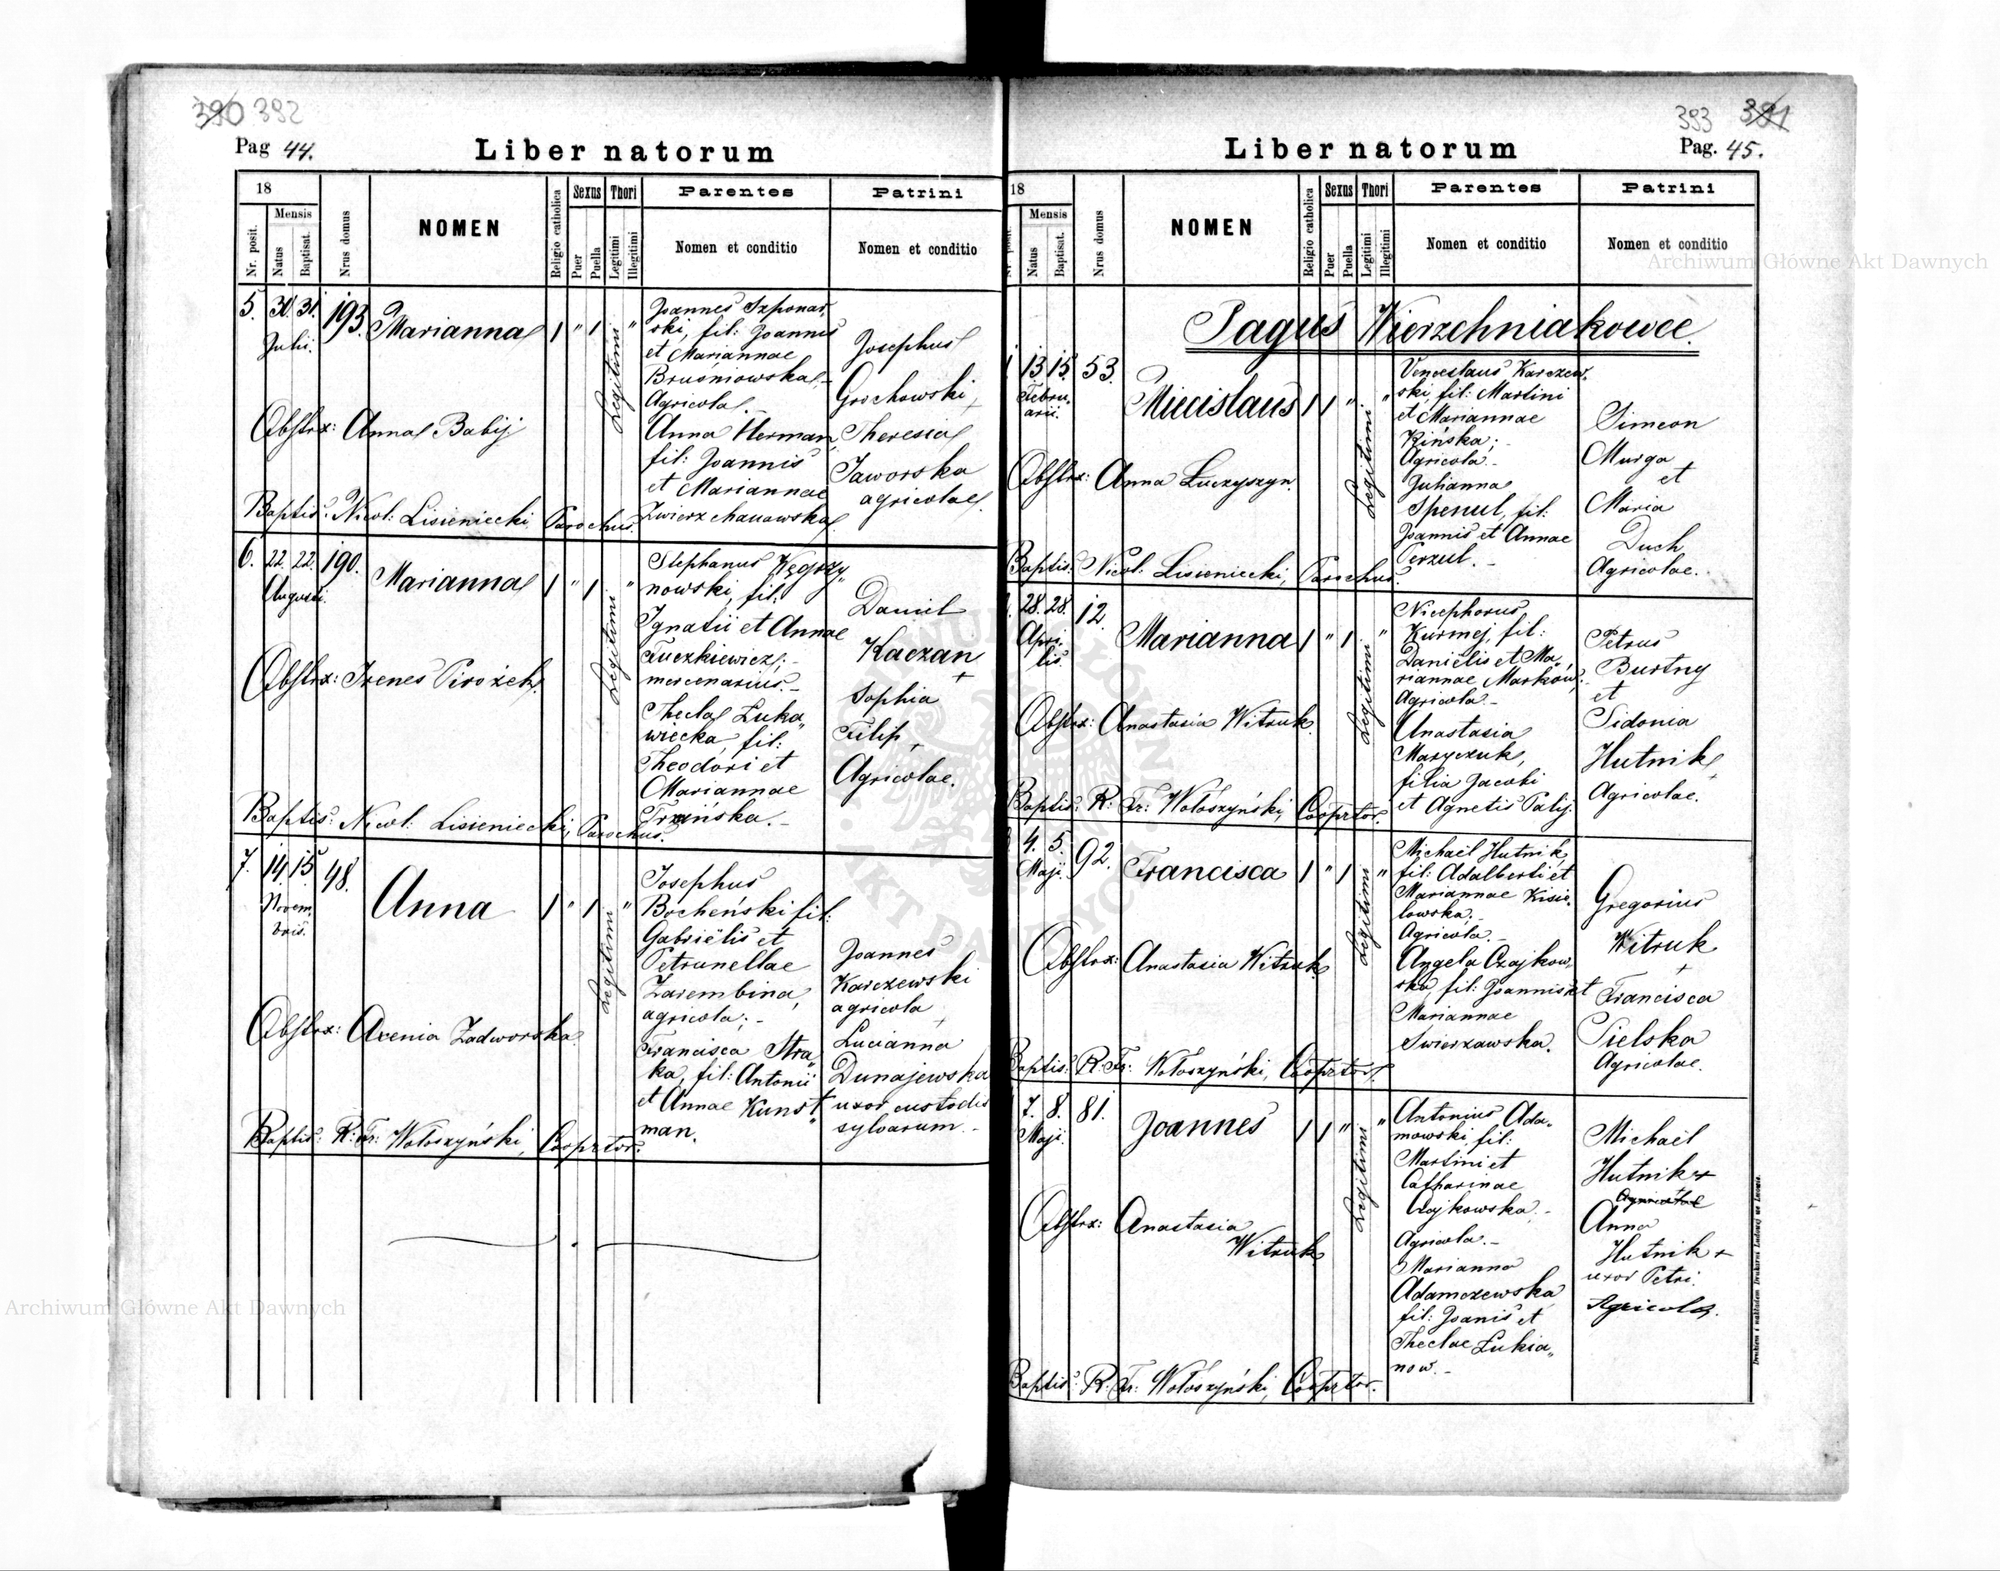 390 392
Pag 44.
Liber natorum
18
Mensis
Nr. posit.
Natus
Baptisat.
Nrus domus
NOMEN
Religio catholica
Sexus
Puer
Puella
Thori
Legitimi
Illegitimi
Parentes
Nomen et conditio
Patrini
Nomen et conditio
5. 30. 31. 193. Marianna 1 " 1 "
Julii.
Legitimi
Obstrx: Anna Babij
Baptis: Nicol: Lisieniecki Parochus.
Joannes Szponar„
ski, fil: Joannis
et Mariannae
Bruśniowska,
Agricola.
Anna Herman,
fil: Joannis
et Mariannae
Zwierzchanowska
Josephus
Grochowski,
Theresia
Jaworska
agricolae.
6. 22. 22. 190. Marianna 1 " 1 "
Augusti.
Legitimi
Obstrx: Irenes Pirożek.
Baptis: Nicol: Lisieniecki, Parochus.
Stephanus Kęgrzy„
nowski, fil:
Ignatii et Annae
Tuczkiewicz;
mercenarius.
Thecla Łuka„
wiecka, fil:
Theodori et
Mariannae
Daniel
Kaczan
+
Sophia
Filip
+
Agricolae.
7. 14. 15. 48. Anna 1 " 1 "
Novem„
bris.
Legitimi
Obstrx: Axenia Zadworska.
Baptis: R: Fr: Wołoszyński, Cooprtor.
Josephus
Bocheński fil:
Gabriëlis et
Petrunellae
Zarembina,
agricola;
Francisca Stra„
ka, fil: Antonii
et Annae Kunst„
man.
Joannes
Karczewski
agricola
+
Lucianna
Dunajewska
uxor custodis
sylvarum.
393 391
Pag. 45.
Liber natorum
18
Mensis
Nr. posit.
Natus
Baptisat.
Nrus domus
NOMEN
Religio catholica
Sexus
Puer
Puella
Thori
Legitimi
Illegitimi
Parentes
Nomen et conditio
Patrini
Nomen et conditio
Pagus Wierzchniakowce.
1 13 15. 53. Miecislaus 1 1 " "
Febru„
arii.
Legitimi
Obstrx: Anna Łuczyszyn.
Baptis: Nicol: Lisieniecki, Parochus.
Venceslaus Karczew„
ski, fil: Martini
et Mariannae
Kińska;
Agricola.
Julianna
Spenul, fil:
Joannis et Annae
Perzul.
Simeon
Murga
et
Maria
Duch
Agricolae.
28. 28. 12. Marianna 1 " 1 "
Apri„
lis.
Legitimi
Obstrx: Anastasia Witruk.
Baptis: R: Fr: Wołoszyński, Cooprtor.
Nicephorus
Kurmej, fil:
Daniëlis et Ma„
riannae Marków,
Agricola.
Anastasia
Maryczuk,
filia Jacobi
et Agnetis Palij.
Petrus
Burtny
et
Sidonia
Hutnik,
Agricolae.
4. 5. 92. Francisca 1 " 1 "
Maji.
Legitimi
Obstrx: Anastasia Witruk.
Baptis: R: Fr: Wołoszyński, Cooprtor.
Michaël Hutnik,
fil: Adalberti et
Mariannae Kisie„
lowska.
Agricola.
Angela Czajkow„
ska, fil: Joannis et
Mariannae
Swierzawska.
Gregorius
Witruk
+
Francisca
Sielska
Agricolae.
7. 8. 81. Joannes 1 1 " "
Maji.
Legitimi
Obstrx: Anastasia
Witruk
Baptis: R: Fr: Wołoszyński, Cooprtor.
Antonius Ada„
mowski, fil:
Martini et
Catharinae
Czajkowska.
Agricola.
Marianna
Adamczewska,
fil: Joanis et
Theclae Łukia„
now.
Michaël
Hutnik +
Agricolae
Anna
Hutnik +
uxor Petri.
Agricola.
Drukiem i nakładem Drukarni Ludowej we Lwowie.
Archiwum Główne Akt Dawnych
Archiwum Główne Akt Dawnych